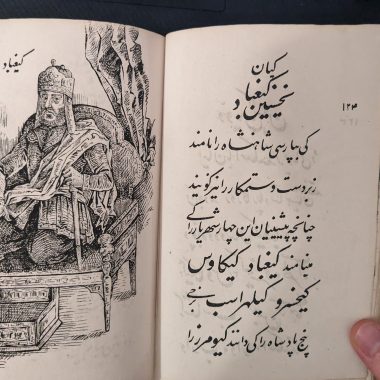 کیقباد
۱۲۴
کیان
نخستین کیقباد
کی بپارسی شاهنشاه را نامند
زبردست و ستمکار را نیز گویند
چنانچه پیشینیان این چهار شهریار را کی
مینامند کیقباد کیکاوس
کیخسرو کیلهراسب برخی
پنج پادشاه را کی دانند کیومرز را